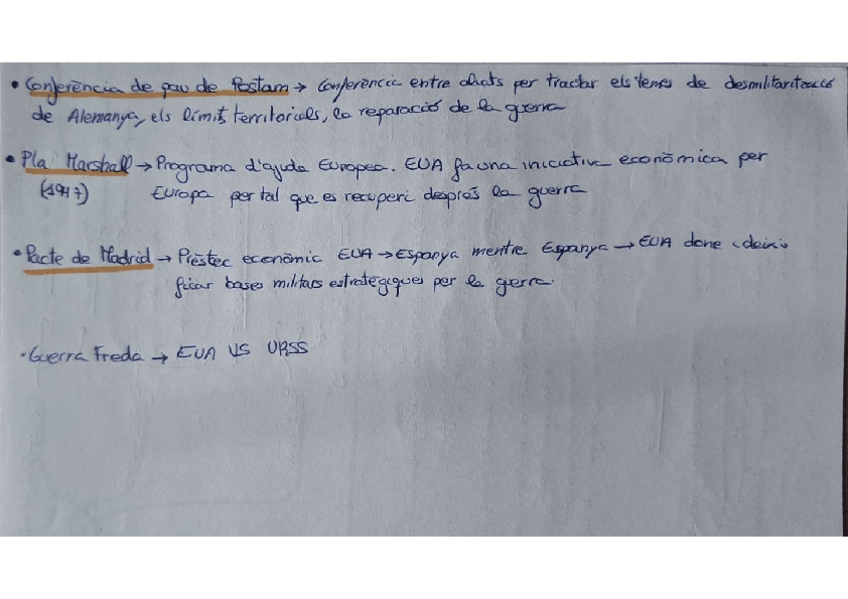 • Conferència de pau de Postam → Conferència entre aliats per tractar els temes de desmilitarització
de Alemanya, els límits territorials, la reparació de la guerra
• Pla Marshall → Programa d'ajuda Europea. EUA fa una iniciativa econòmica per
(1947) Europa per tal que es recuperi després la guerra
• Pacte de Madrid → Préstec econòmic EUA → Espanya mentre Espanya → EUA done i deixi
ficar bases militars estratègiques per la guerra.
• Guerra Freda → EUA VS URSS